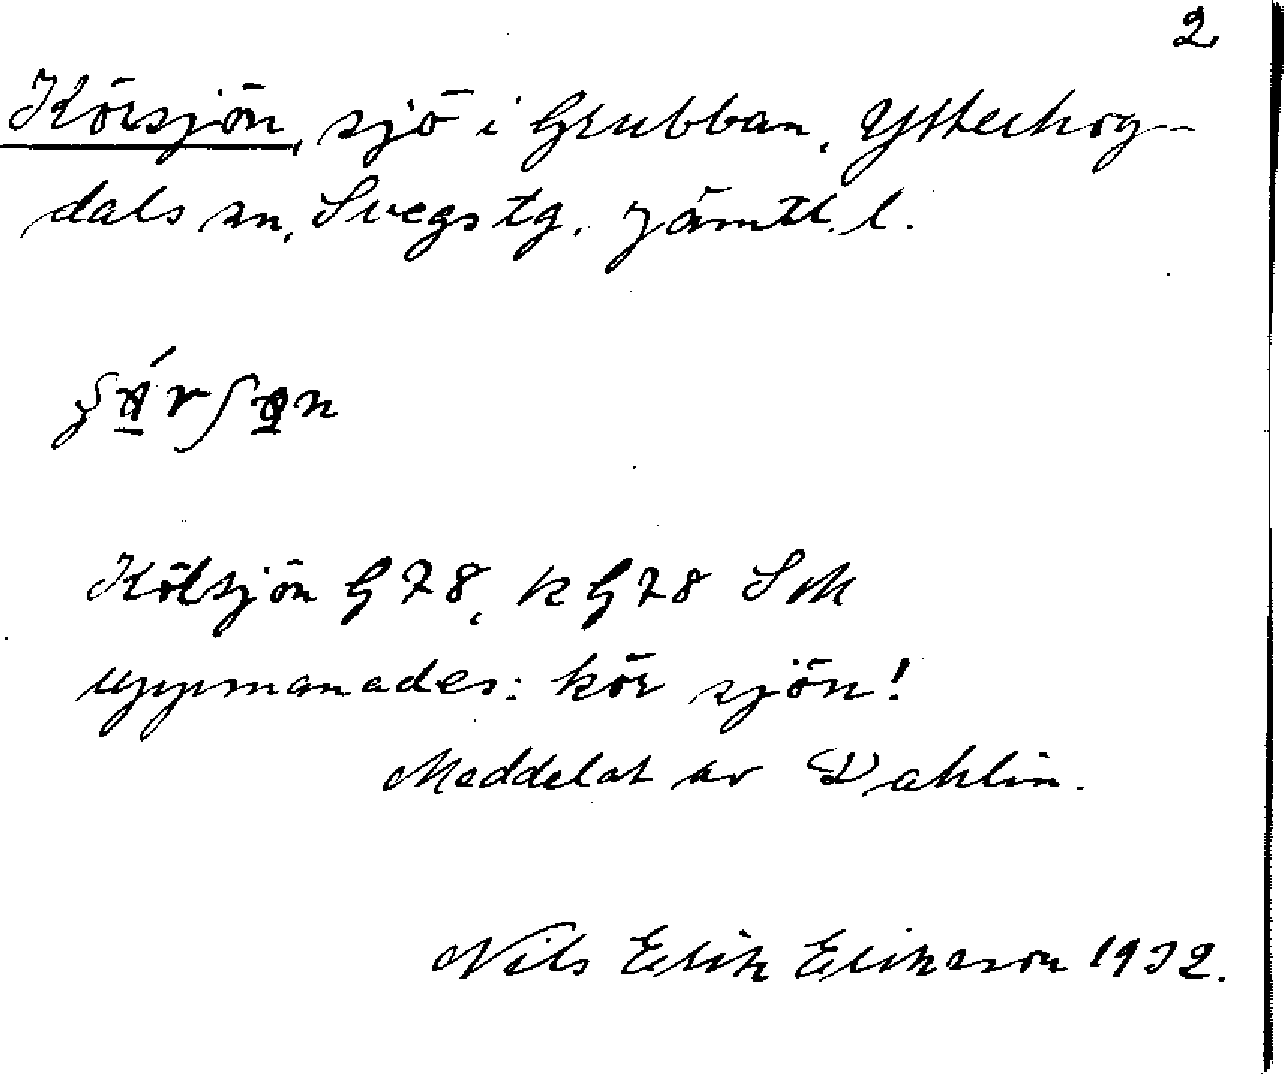 2
Körsjön, sjö i Grubban, Ytterhog-
dals sn, Svegs tg. Jämtl. l.
Kölsjön G 78, k G 78 SOK
uppmanades: kör sjön!
Meddelat av Dahlin.
Nils Erik Erikson 1932.